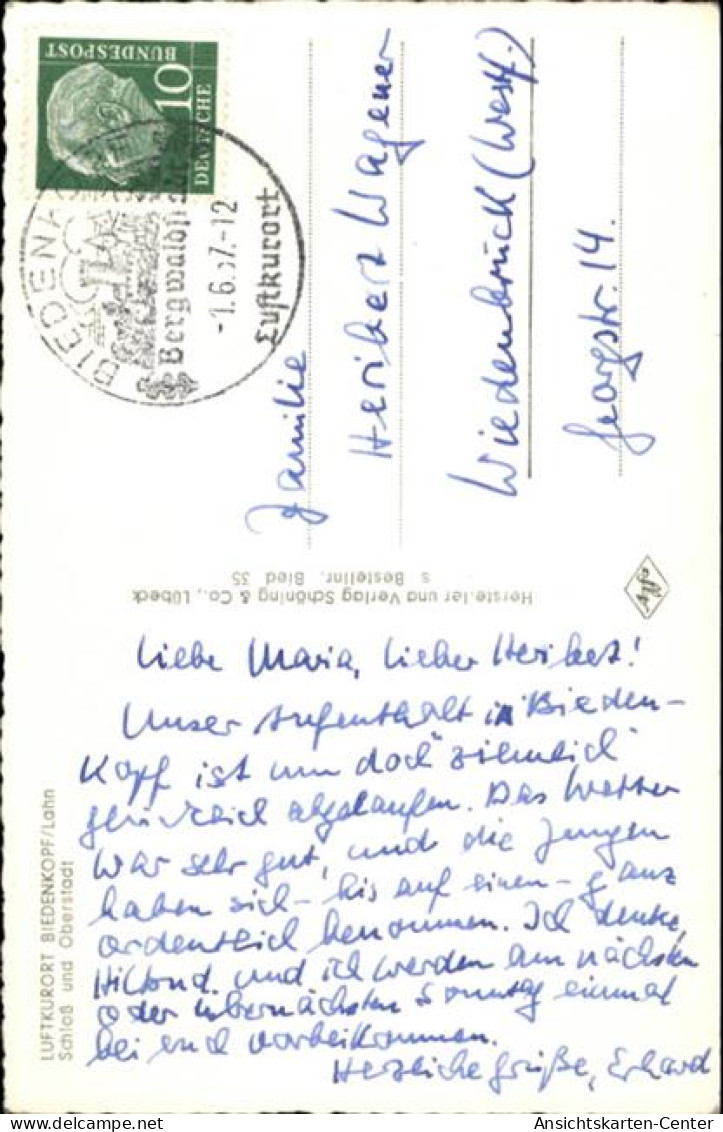 DEUTSCHE
BUNDESPOST
10
BIEDENKOPF
Bergwaldstadt
-1.6.57.-12
Luftkurort
Familie
Heribert Wagener
Wiedenbrück (Westf.)
Georgstr. 14.
Hersteller und Verlag Schöning & Co., Lübeck
s Bestellnr. Bied 35
LUFTKURORT BIEDENKOPF/Lahn
Schloß und Oberstadt
Liebe Maria, lieber Heribert!
Unser Aufenthalt in Bieden-
Kopf ist nun doch "ziemlich"
glücklich abgelaufen. Das Wetter
war sehr gut, und die Jungen
haben sich - bis auf einen - ganz
ordentlich benommen. Ich denke,
und ich werden am nächsten
oder übernächsten Sonntag einmal
bei euch vorbeikommen.
Herzliche Grüße, Erhard
Ansichtskarten-Center